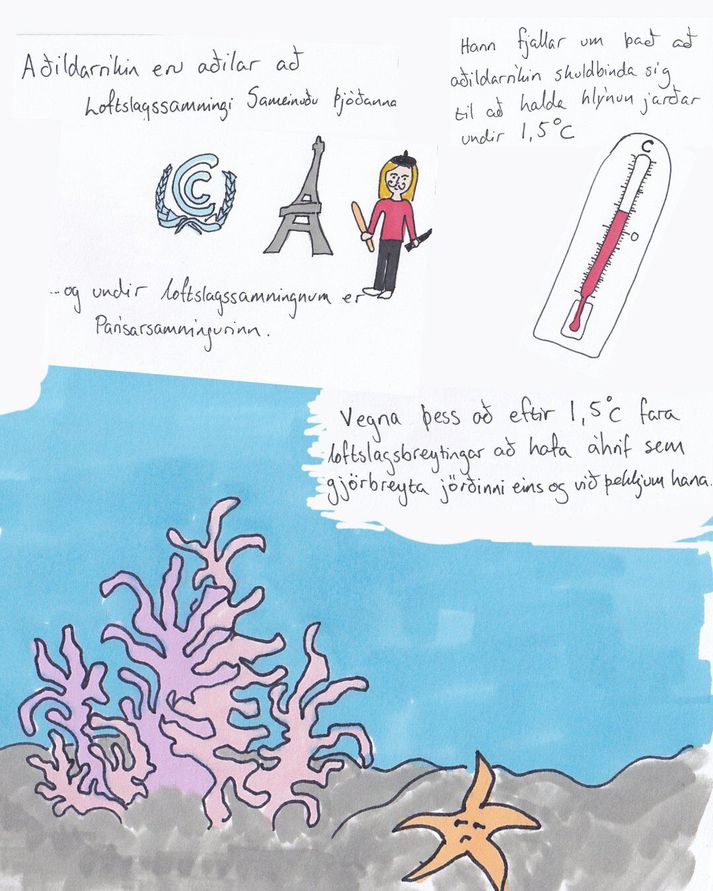 Aðildarríkin eru aðilar að
Loftslagssamningi Sameinuðu þjóðanna
Hann fjallar um það að
aðildarríkin skuldbinda sig
til að halda hlýnun jarðar
undir 1,5°C
C
0
...og undir loftslagssamningnum er
Parísarsamningurinn.
Vegna þess að eftir 1,5°C fara
loftslagsbreytingar að hafa áhrif sem
gjörbreyta jörðinni eins og við þekkjum hana.